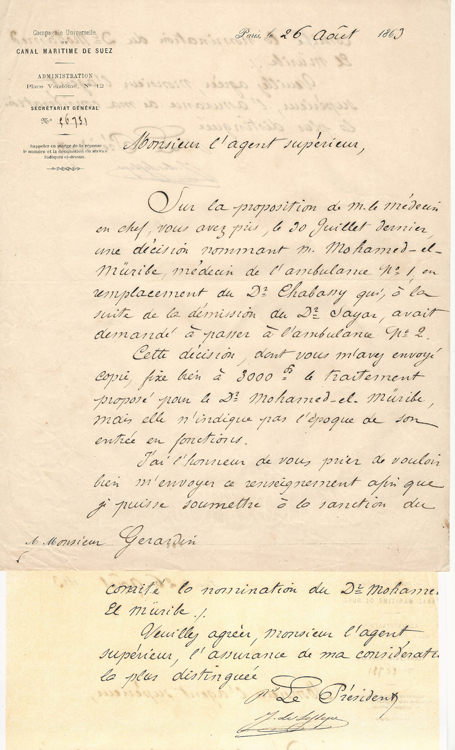 Compagnie Universelle
CANAL MARITIME DE SUEZ
ADMINISTRATION
Place Vendôme, No 12
SECRÉTARIAT GÉNÉRAL
No 26731
Rappeler en marge de la réponse
le numéro et la désignation du service
indiqués ci-dessus.
Paris, le 26 Août 1863
Monsieur l'agent supérieur,
Sur la proposition de M. le médecin
en chef, vous avez pris, le 30 Juillet dernier,
une décision nommant M. Mohamed-el-
Müribe, médecin de l'ambulance No 1, en
remplacement du Dr Chabassy qui, à la
suite de la démission du Dr Sayar, avait
demandé à passer à l'ambulance No 2.
Cette décision, dont vous m'avez envoyé
copie, fixe bien à 3000 fs le traitement
proposé pour le Dr Mohamed-el-Müribe,
mais elle n'indique pas l'époque de son
entrée en fonctions.
J'ai l'honneur de vous prier de vouloir
bien m'envoyer ce renseignement afin que
je puisse soumettre à la sanction du
A Monsieur Gerardin
comité la nomination du Dr Mohamed
El müribe ./.
Veuillez agréer, Monsieur l'agent
supérieur, l'assurance de ma considération
la plus distinguée
Le Président